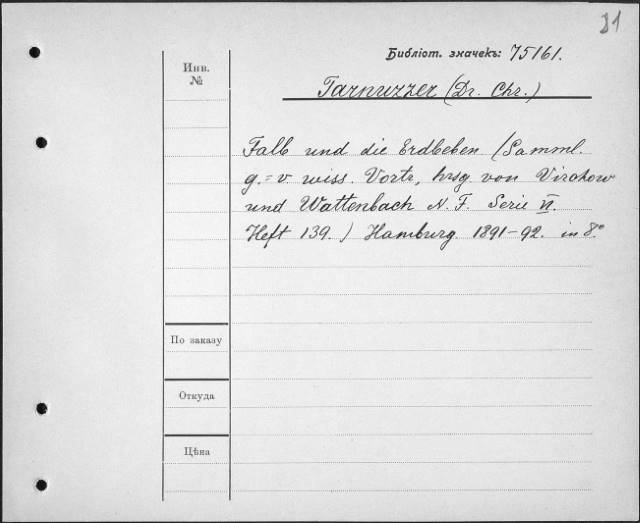 31
Библіот. значекъ: 75161.
Инв.
№
Tarnuzzer (Dr. Chr.)
Falb und die Erdbeben (Samml.
g.=v. wiss. Vortr., hrsg. von Virchow
und Wattenbach N. F. Serie VI.
Heft 139.) Hamburg 1891-92. in 8°.
По заказу
Откуда
Цѣна